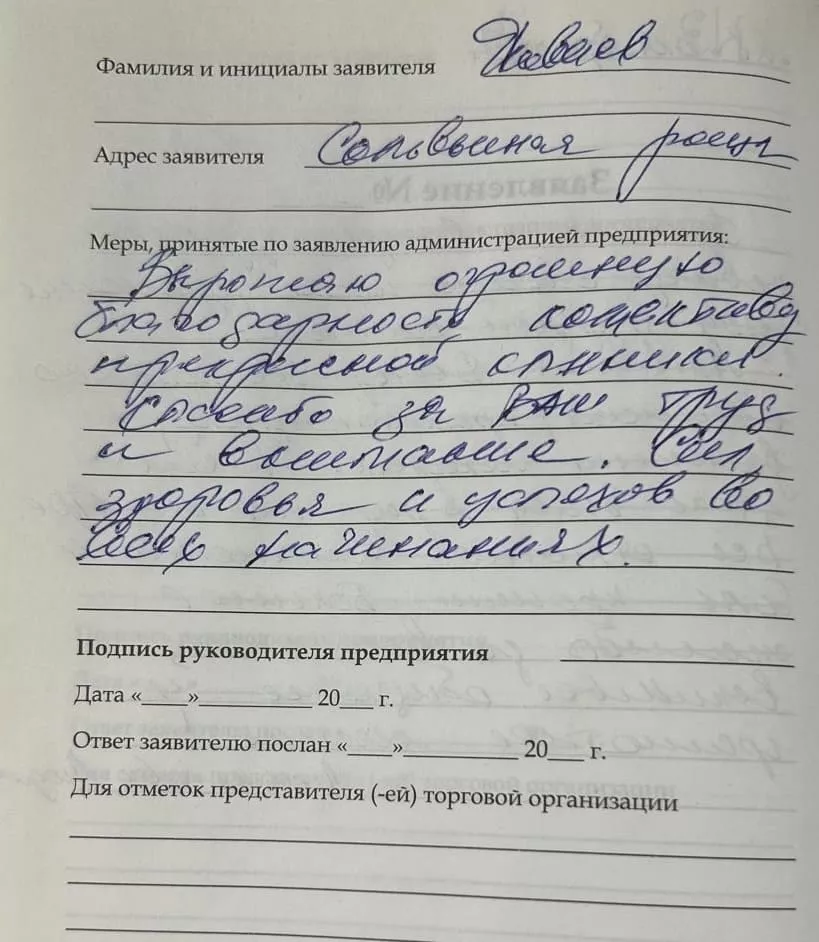 Фамилия и инициалы заявителя
Адрес заявителя Соловьиная роща
Меры, принятые по заявлению администрацией предприятия:
Выражаю огромную
благодарность коллективу
прекрасной клиники.
Спасибо за ваш труд
и внимание. Сил,
здоровья и успехов во
всех начинаниях.
Подпись руководителя предприятия
Дата «____»__________ 20___ г.
Ответ заявителю послан «____»__________ 20___ г.
Для отметок представителя (-ей) торговой организации